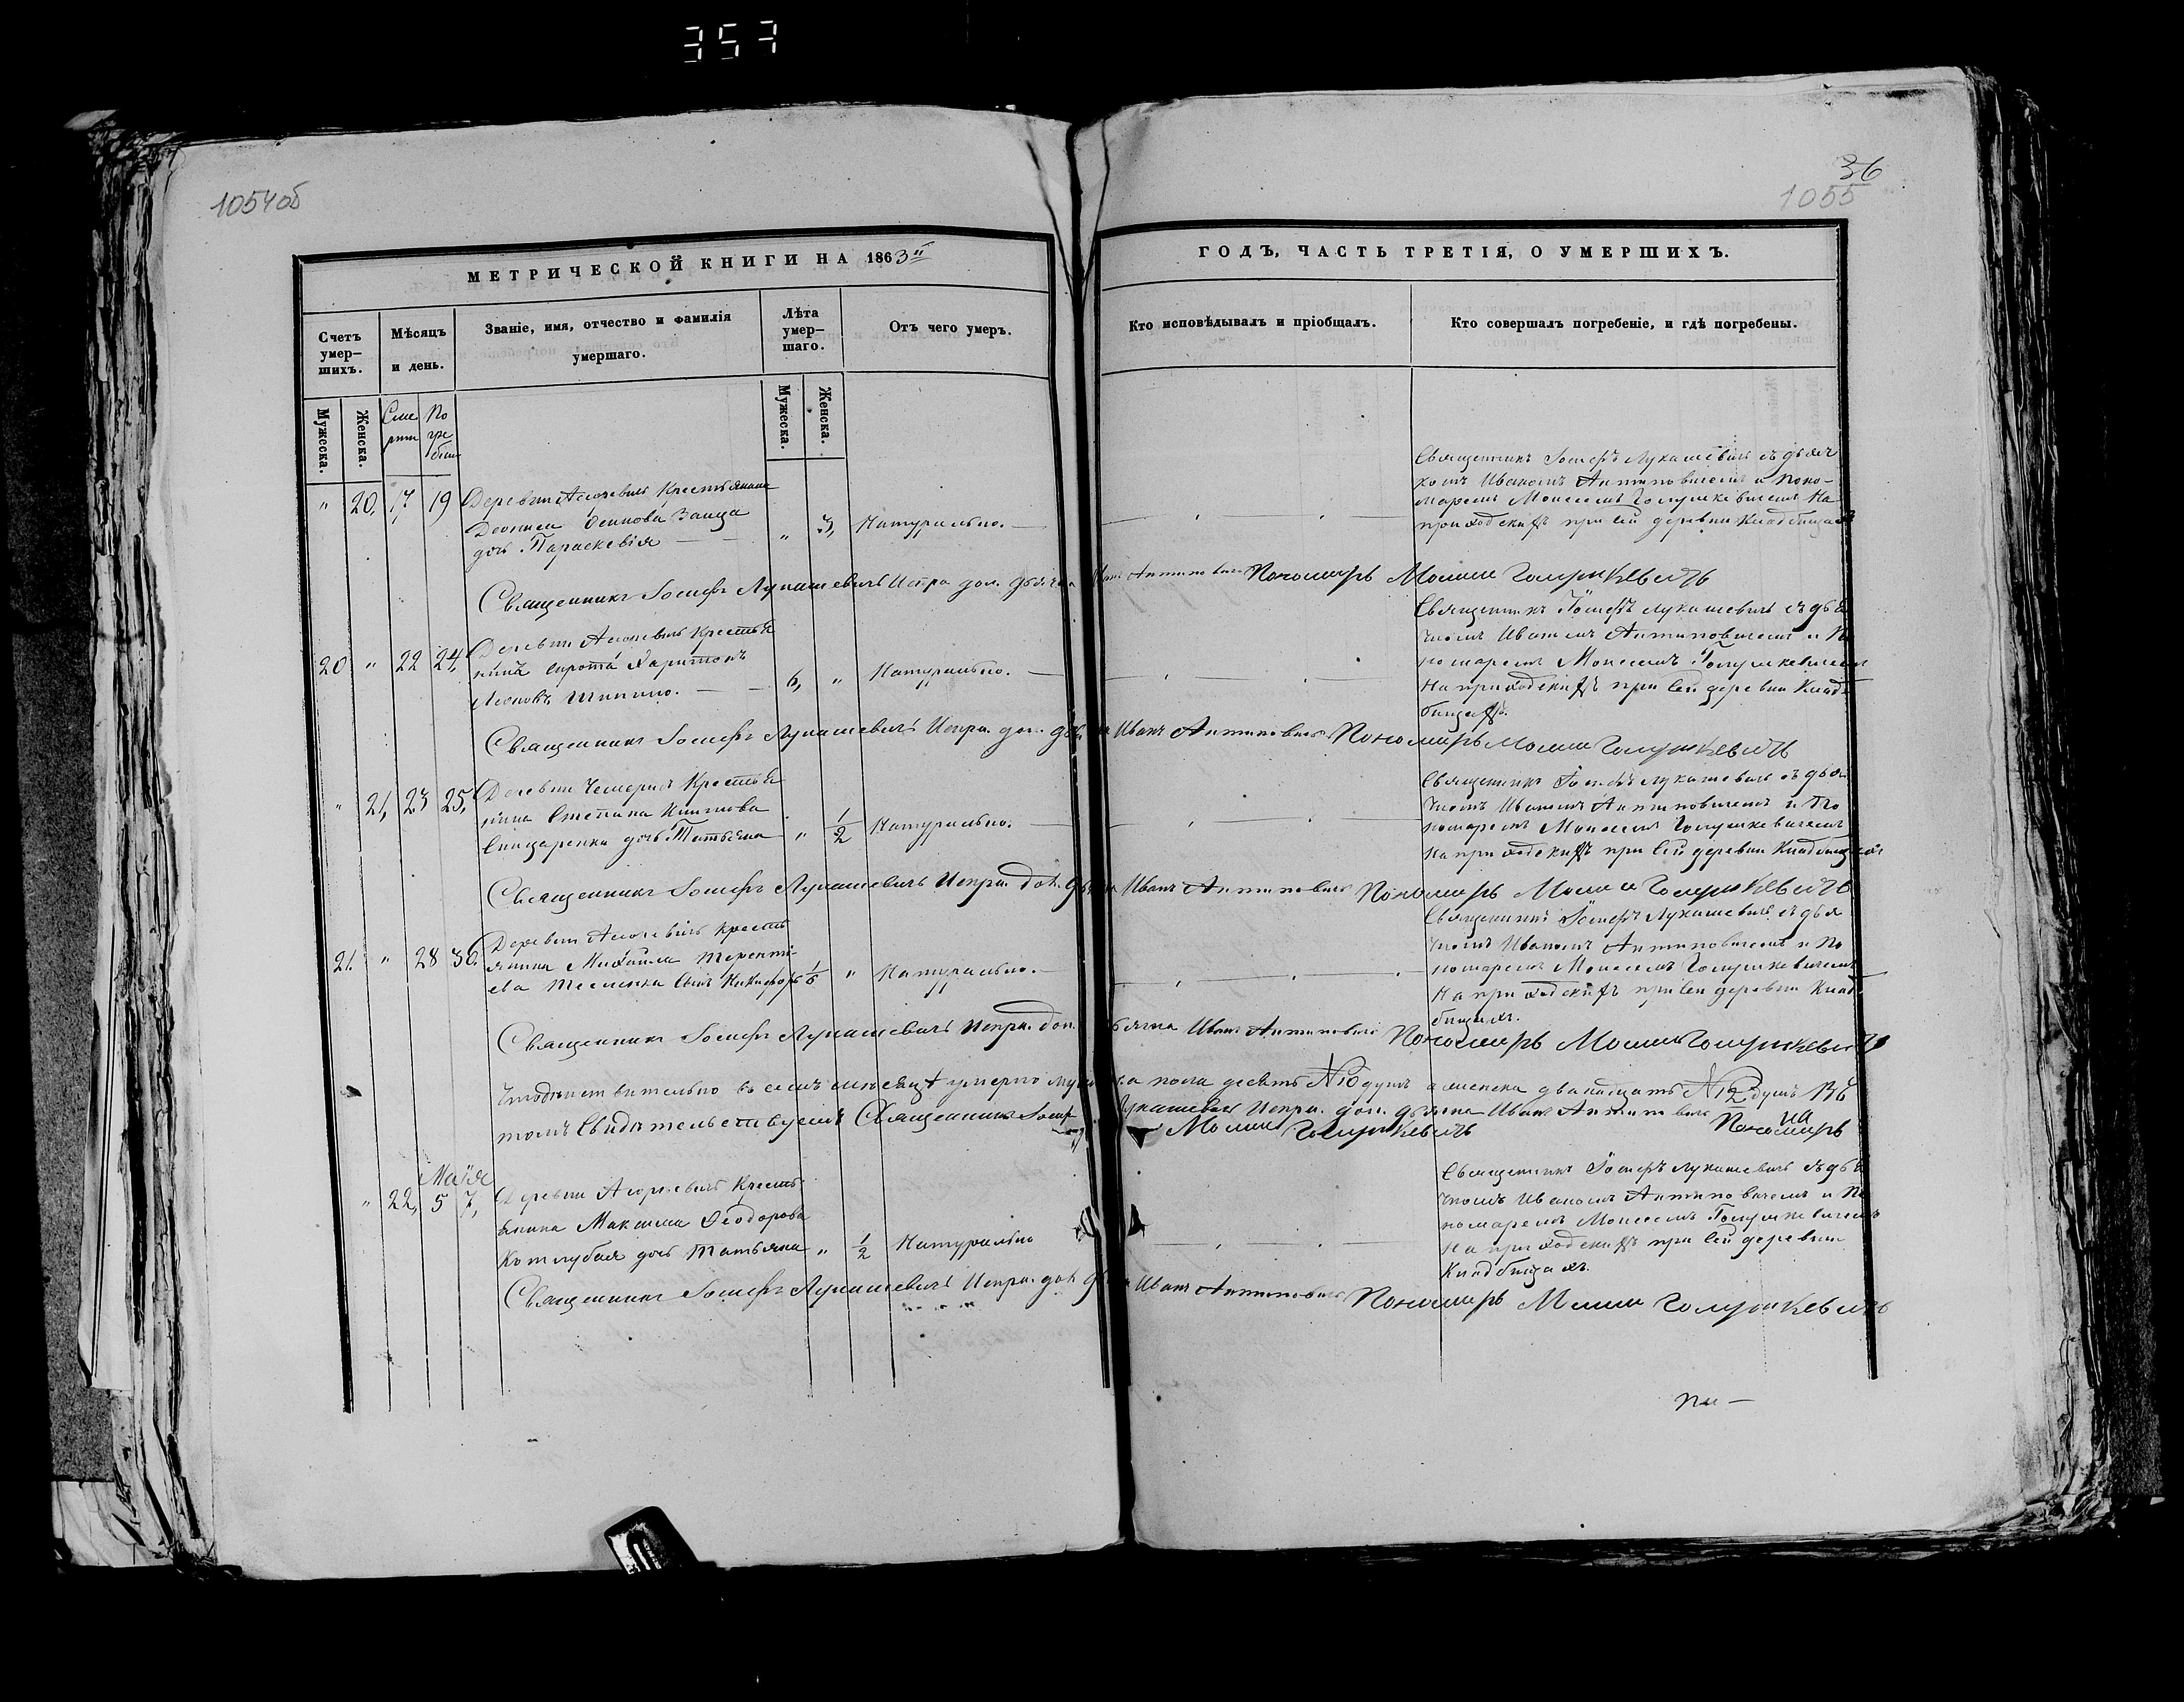 357
1054об
36
1055
МЕТРИЧЕСКОЙ КНИГИ НА 1863й
ГОДЪ, ЧАСТЬ ТРЕТІЯ, О УМЕРШИХЪ.
Счетъ умер-шихъ.
Мѣсяцъ и день.
Званіе, имя, отчество и фамилія умершаго.
Лѣта умер-шаго.
Отъ чего умеръ.
Кто исповѣдывалъ и пріобщалъ.
Кто совершалъ погребеніе, и гдѣ погребены.
Мужеска.
Женска.
Сме рти
По гре бенія
Мужеска.
Женска.
" 20, 17, 19 Деревни крестьянина
Осипова Заица
дочь Параскевія " 3, Натурально.
Священникъ Іосифъ Лукашевичъ съ дьяч
комъ Иваномъ Антиповичемъ и поно-
маремъ Моисеемъ Голушкевичемъ на
приходскихъ при сей деревни Кладбищахъ
Священникъ Іосифъ Лукашевичъ Испра. дол. дьячка Иванъ Антиповичъ Пономарь Моисей Голушкевичъ
20 " 22 24, Деревни крестья
нинъ сирота Харитонъ
6, " Натурально.
Священникъ Іосифъ Лукашевичъ съ дья
чкомъ Иваномъ Антиповичемъ и По
номаремъ Моисеемъ Голушкевичемъ
на приходскихъ при сей деревни Клад
бищахъ.
Священникъ Іосифъ Лукашевичъ Испра. дол. дьячка Иванъ Антиповичъ Пономарь Моисей Голушкевичъ
" 21, 23 25, Деревни Чемерисъ Крестья
нина Степана
дочь Татьяна " 1/2 Натурально.
Священникъ Іосифъ Лукашевичъ съ дья
чкомъ Иваномъ Антиповичемъ и По
номаремъ Моисеемъ Голушкевичемъ
на приходскихъ при сей деревни Кладбищахъ
Священникъ Іосифъ Лукашевичъ Испра. дол. дьячка Иванъ Антиповичъ Пономарь Моисей Голушкевичъ
21. " 28 30. Деревни кресть
янина Михаила Теренті-
ева сынъ Никифоръ 1/6 " Натурально.
Священникъ Іосифъ Лукашевичъ съ дья
чкомъ Иваномъ Антиповичемъ и По
номаремъ Моисеемъ Голушкевичемъ
на приходскихъ при сей деревни Клад
бищахъ.
Священникъ Іосифъ Лукашевичъ Испра. дол. дьячка Иванъ Антиповичъ Пономарь Моисей Голушкевичъ
Что действительно въ семъ месяце умерло мужеска пола десять №10 душъ а женска дванадцать №12 душъ въ
томъ Свидетельствуемъ Священникъ Іосифъ Лукашевичъ Испра. дол. дьячка Иванъ Антиповичъ Пономарь
Моисей Голушкевичъ
Маія
" 22, 5 7, Деревни кресть
янина Максима Ѳеодорова
Котлубая дочь Татьяна " 1/2 Натурально
Священникъ Іосифъ Лукашевичъ съ дья
чкомъ Иваномъ Антиповичемъ и По
номаремъ Моисеемъ Голушкевичемъ
на приходскихъ при сей деревни
Кладбищахъ.
Священникъ Іосифъ Лукашевичъ Испра. дол. дьячка Иванъ Антиповичъ Пономарь Моисей Голушкевичъ